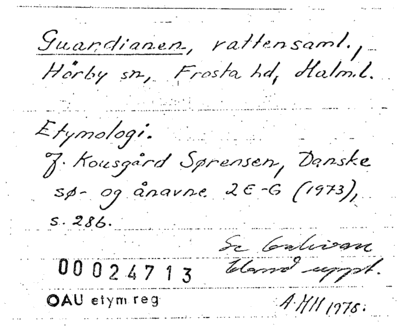 Guardianen, vattensaml.,
Hörby sn, Frosta hd, Malm.l.
Etymologi.
Jf. Kousgård Sørensen, Danske
sø- og ånavne 2 E-G (1973),
s. 286.
Se
uppt.
00024713
OAU etym reg 1975.